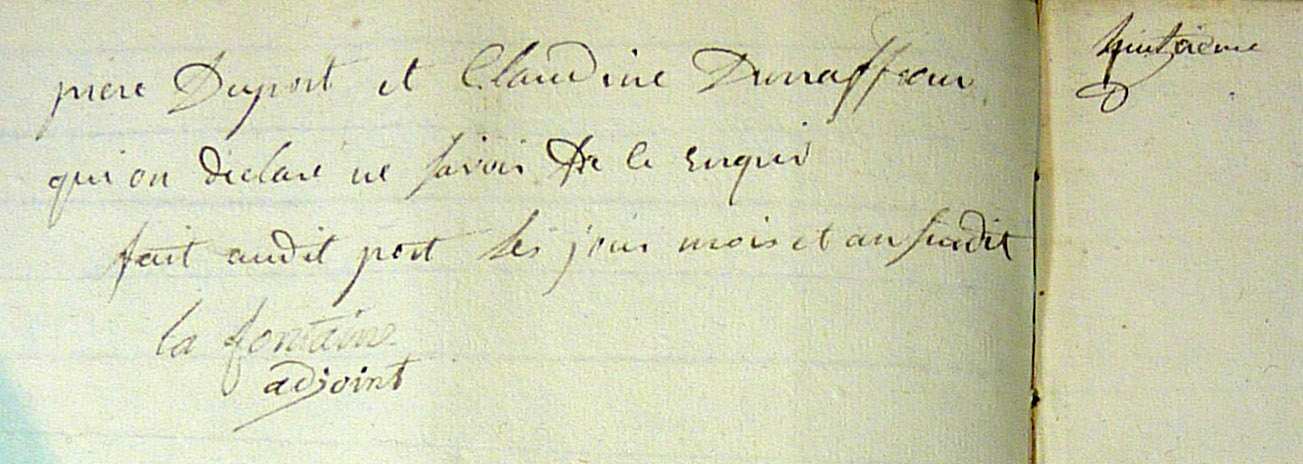 piere Duport et Claudine Durraffour
qui on déclaré ne savoir De ce enqui
fait audit port les jour mois et an susdit
la fontaine
adjoint
huitzieme